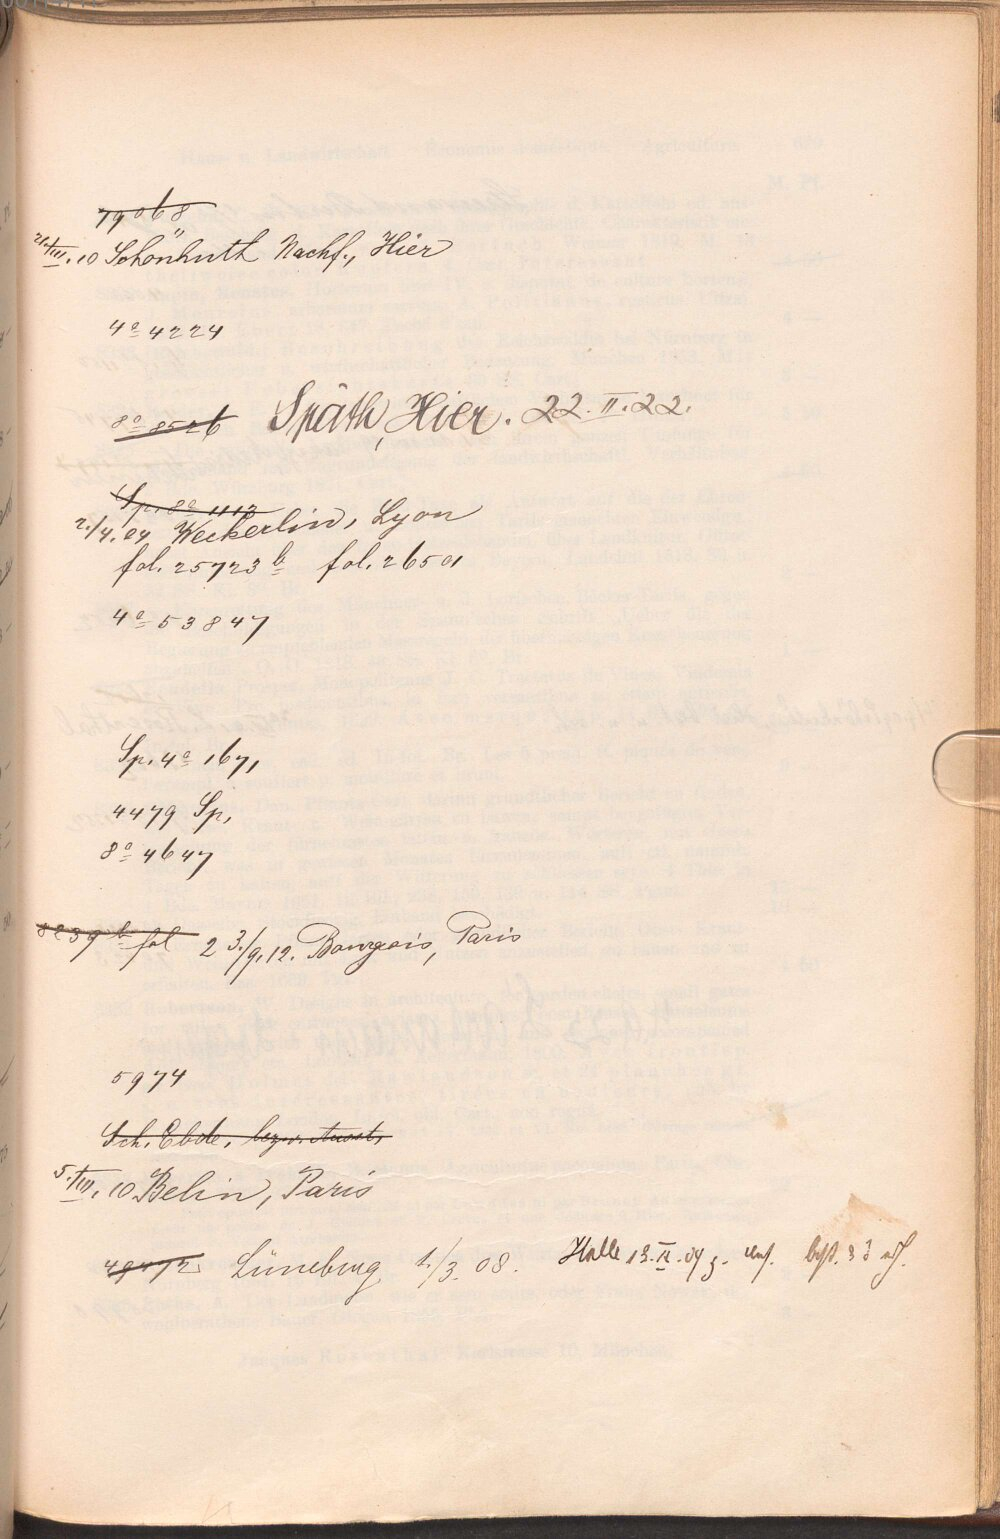 79068
21./III.10 Schönhuth Nachf., Hier
4º 4224
8º 8526 Späth, Hier. 22.II.22.
Sp. 8º 1113
2./4.04 Weckerlin, Lyon
fol. 25723 b fol. 26501
4º 53847
Sp. 4º 1671
4479 Sp.
8º 4647
8239 b fol 23./9.12. Bourgeois, Paris
5974
Sch. Ebde.
5./III.10 Belin, Paris
49472 Lüneburg 1./3.08. Halle 13.II.09